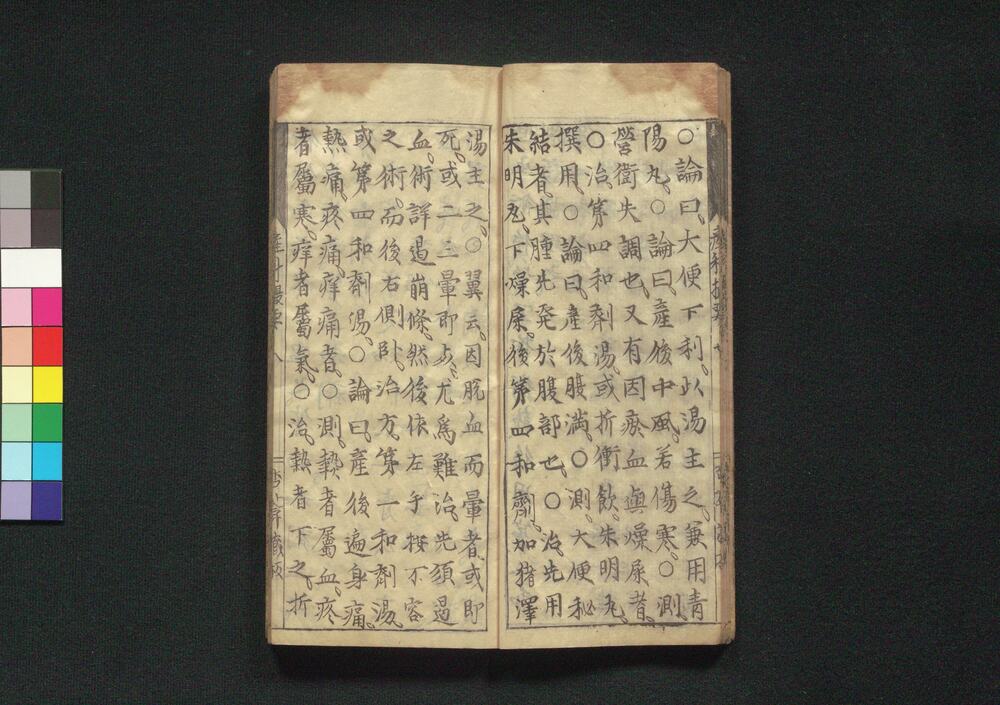 ○論曰大便下利。以湯主之。兼用青
陽丸。○論曰產後中風。若傷寒。○測
營衛失調也又有因瘀血與燥屎者。
○治第四和劑湯。或折衝飲。朱明丸。
撰用。○論曰產後腹滿。○測大便秘
結者。其腫先発於腹部也。○治先用
朱明丸。下燥屎。後第四和劑。加猪澤
湯主之。○翼云。因脫血而暈者。或即
死。或二三暈即占。尤爲難治。先須遏
血。術詳遏崩條。然後依左手按不容
之術。而後右側臥。治方。第一和劑湯。
或第四和劑湯。○論曰。產後遍身痛。
熱痛。疼痛。痒痛者。○測。熱者屬血。疼
者屬寒。痒者屬氣。○治。熱者下之。折
產科撮要
八